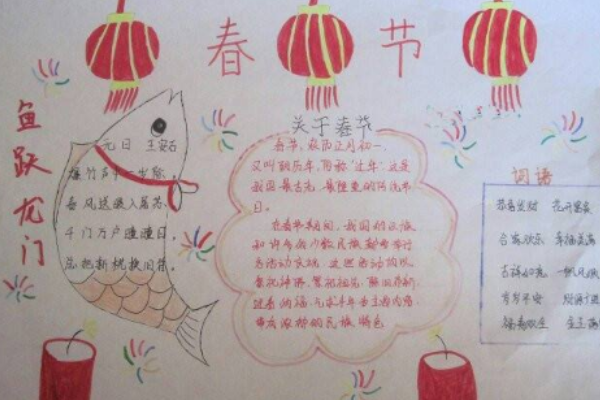 春节
鱼跃龙门
元日 王安石
爆竹声中一岁除,
春风送暖入屠苏.
千门万户曈曈日,
总把新桃换旧符.
关于春节
春节,农历正月初一,
又叫阴历年,俗称"过年".这是
我国最古老、最隆重的传统节
日。
在春节期间,我国的汉族
和许多少数民族都要举行
各活动
祭祀祖先、除旧布新、
内容.
带有浓郁的民族特色
词语
恭喜发财 花开富贵
合家欢乐 幸福美满
吉祥如意 一帆风顺
岁岁平安 财源广进
福寿双全